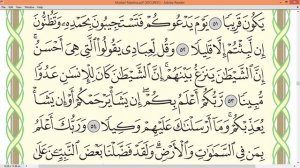 يَكُونَ قَرِيبًا ٥١ يَوْمَ يَدْعُوكُمْ فَتَسْتَجِيبُونَ بِحَمْدِهِۦ وَتَظُنُّونَ
إِن لَّبِثْتُمْ إِلَّا قَلِيلًا ٥٢ وَقُل لِّعِبَادِى يَقُولُوا۟ ٱلَّتِى هِىَ أَحْسَنُ
إِنَّ ٱلشَّيْطَٰنَ يَنزَغُ بَيْنَهُمْ إِنَّ ٱلشَّيْطَٰنَ كَانَ لِلْإِنسَٰنِ عَدُوًّا
مُّبِينًا ٥٣ رَّبُّكُمْ أَعْلَمُ بِكُمْ إِن يَشَأْ يَرْحَمْكُمْ أَوْ إِن يَشَأْ
يُعَذِّبْكُمْ وَمَآ أَرْسَلْنَٰكَ عَلَيْهِمْ وَكِيلًا ٥٤ وَرَبُّكَ أَعْلَمُ
بِمَن فِى ٱلسَّمَٰوَٰتِ وَٱلْأَرْضِ وَلَقَدْ فَضَّلْنَا بَعْضَ ٱلنَّبِيِّۦنَ عَلَىٰ